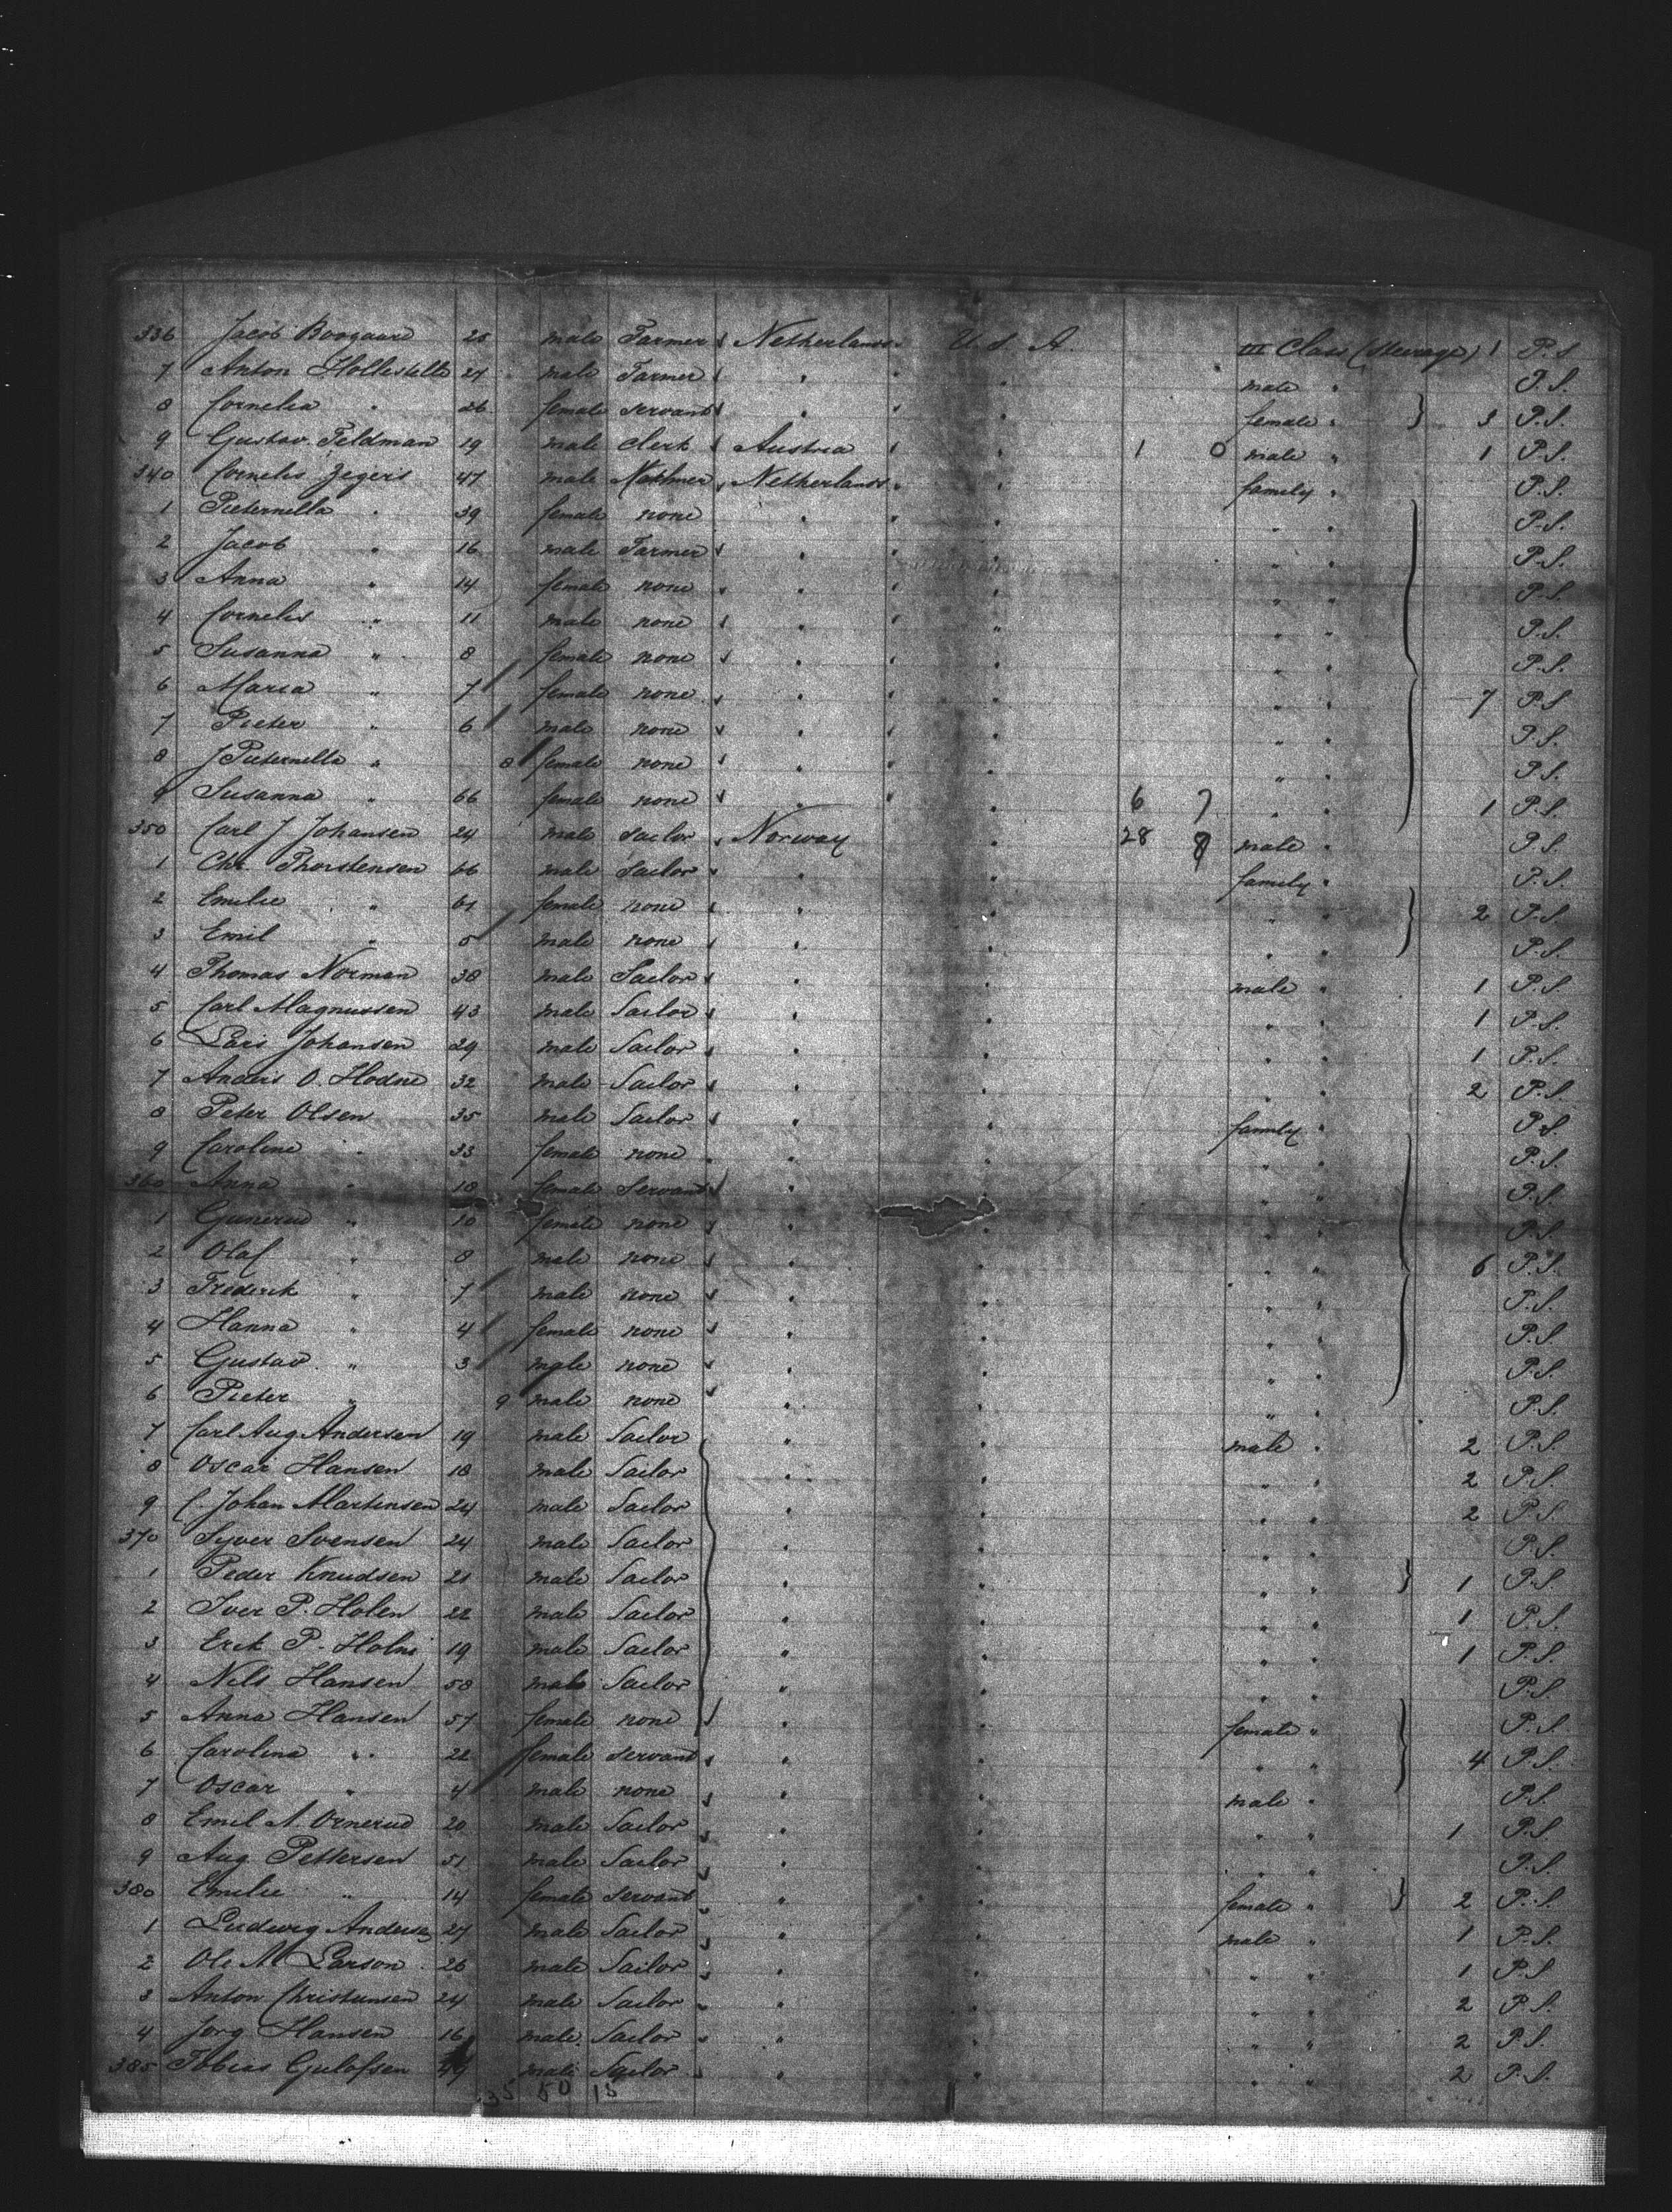 336 Jacob Boogaard 25 male Farmer Netherlands U. S. A. III Class (Steerage) 1 P.S.
7 Anton Hollestelle 27 male Farmer " " male " P.S.
8 Cornelia " 26 female servant " " female " 3 P.S.
9 Gustav Feldman 19 male clerk Austria " 1 0 male " 1 P.S.
340 Cornelis Zegers 47 male Netherlands " family " P.S.
1 Pieternella " 39 female none " " " " P.S.
2 Jacob " 16 male Farmer " " " " P.S.
3 Anna " 14 female none " " " " P.S.
4 Cornelis " 11 male none " " " " P.S.
5 Susanna " 8 female none " " " " P.S.
6 Maria " 7 female none " " " " 7 P.S.
7 Pieter " 6 male none " " " " P.S.
8 J Pieternella " 8 female none " " " " P.S.
9 Susanna " 66 female none " " 6 7 " " 1 P.S.
350 Carl J Johansen 24 male sailor Norway " 28 8 male " P.S.
1 Chr. Thorstensen 66 male Sailor " " family " P.S.
2 Emilie " 61 female none " " " " 2 P.S.
3 Emil " 5 male none " " " " P.S.
4 Thomas Norman 38 male Sailor " " male " 1 P.S.
5 Carl Magnussen 43 male Sailor " " " " 1 P.S.
6 Lars Johansen 29 male Sailor " " " " 1 P.S.
7 Anders O. Hodne 32 male Sailor " " " " 2 P.S.
8 Peter Olsen 35 male Sailor " " family " P.S.
9 Caroline " 33 female none " " " " P.S.
360 Anna " 18 female Servant " " " " P.S.
1 " 10 female none " " " " P.S.
2 Olaf " 8 male none " " " " 6 P.S.
3 Frederik " 7 male none " " " " P.S.
4 Hanna " 4 female none " " " " P.S.
5 Gustav " 3 male none " " " " P.S.
6 Pieter " 9 male none " " " " P.S.
7 Carl Aug Andersen 19 male Sailor " " male " 2 P.S.
8 Oscar Hansen 18 male Sailor " " " " 2 P.S.
9 C. Johan Martinsen 24 male Sailor " " " " 2 P.S.
370 Syver Svensen 24 male Sailor " " " " P.S.
1 Peder Knudsen 21 male Sailor " " " " 1 P.S.
2 Iver P. Holen 22 male Sailor " " " " 1 P.S.
3 Erik P. 19 male Sailor " " " " 1 P.S.
4 Nils Hansen 58 male Sailor " " " " P.S.
5 Anna Hansen 57 female none " " female " P.S.
6 Carolina " 22 female servant " " " " 4 P.S.
7 Oscar " 4 male none " " male " P.S.
8 Emil A. Ornerud 20 male Sailor " " " " 1 P.S.
9 Aug. Pettersen 51 male Sailor " " " " P.S.
380 Emilie " 14 female servant " " female " 2 P.S.
1 Ludwig Andersen 27 male Sailor " " male " 1 P.S.
2 Ole M Larson 26 male Sailor " " " " 1 P.S.
3 Anton Christiansen 24 male Sailor " " " " 2 P.S.
4 Jorg Hansen 16 male Sailor " " " " 2 P.S.
385 Tobias Gulofsen male Sailor " " " " 2 P.S.
35 50 15